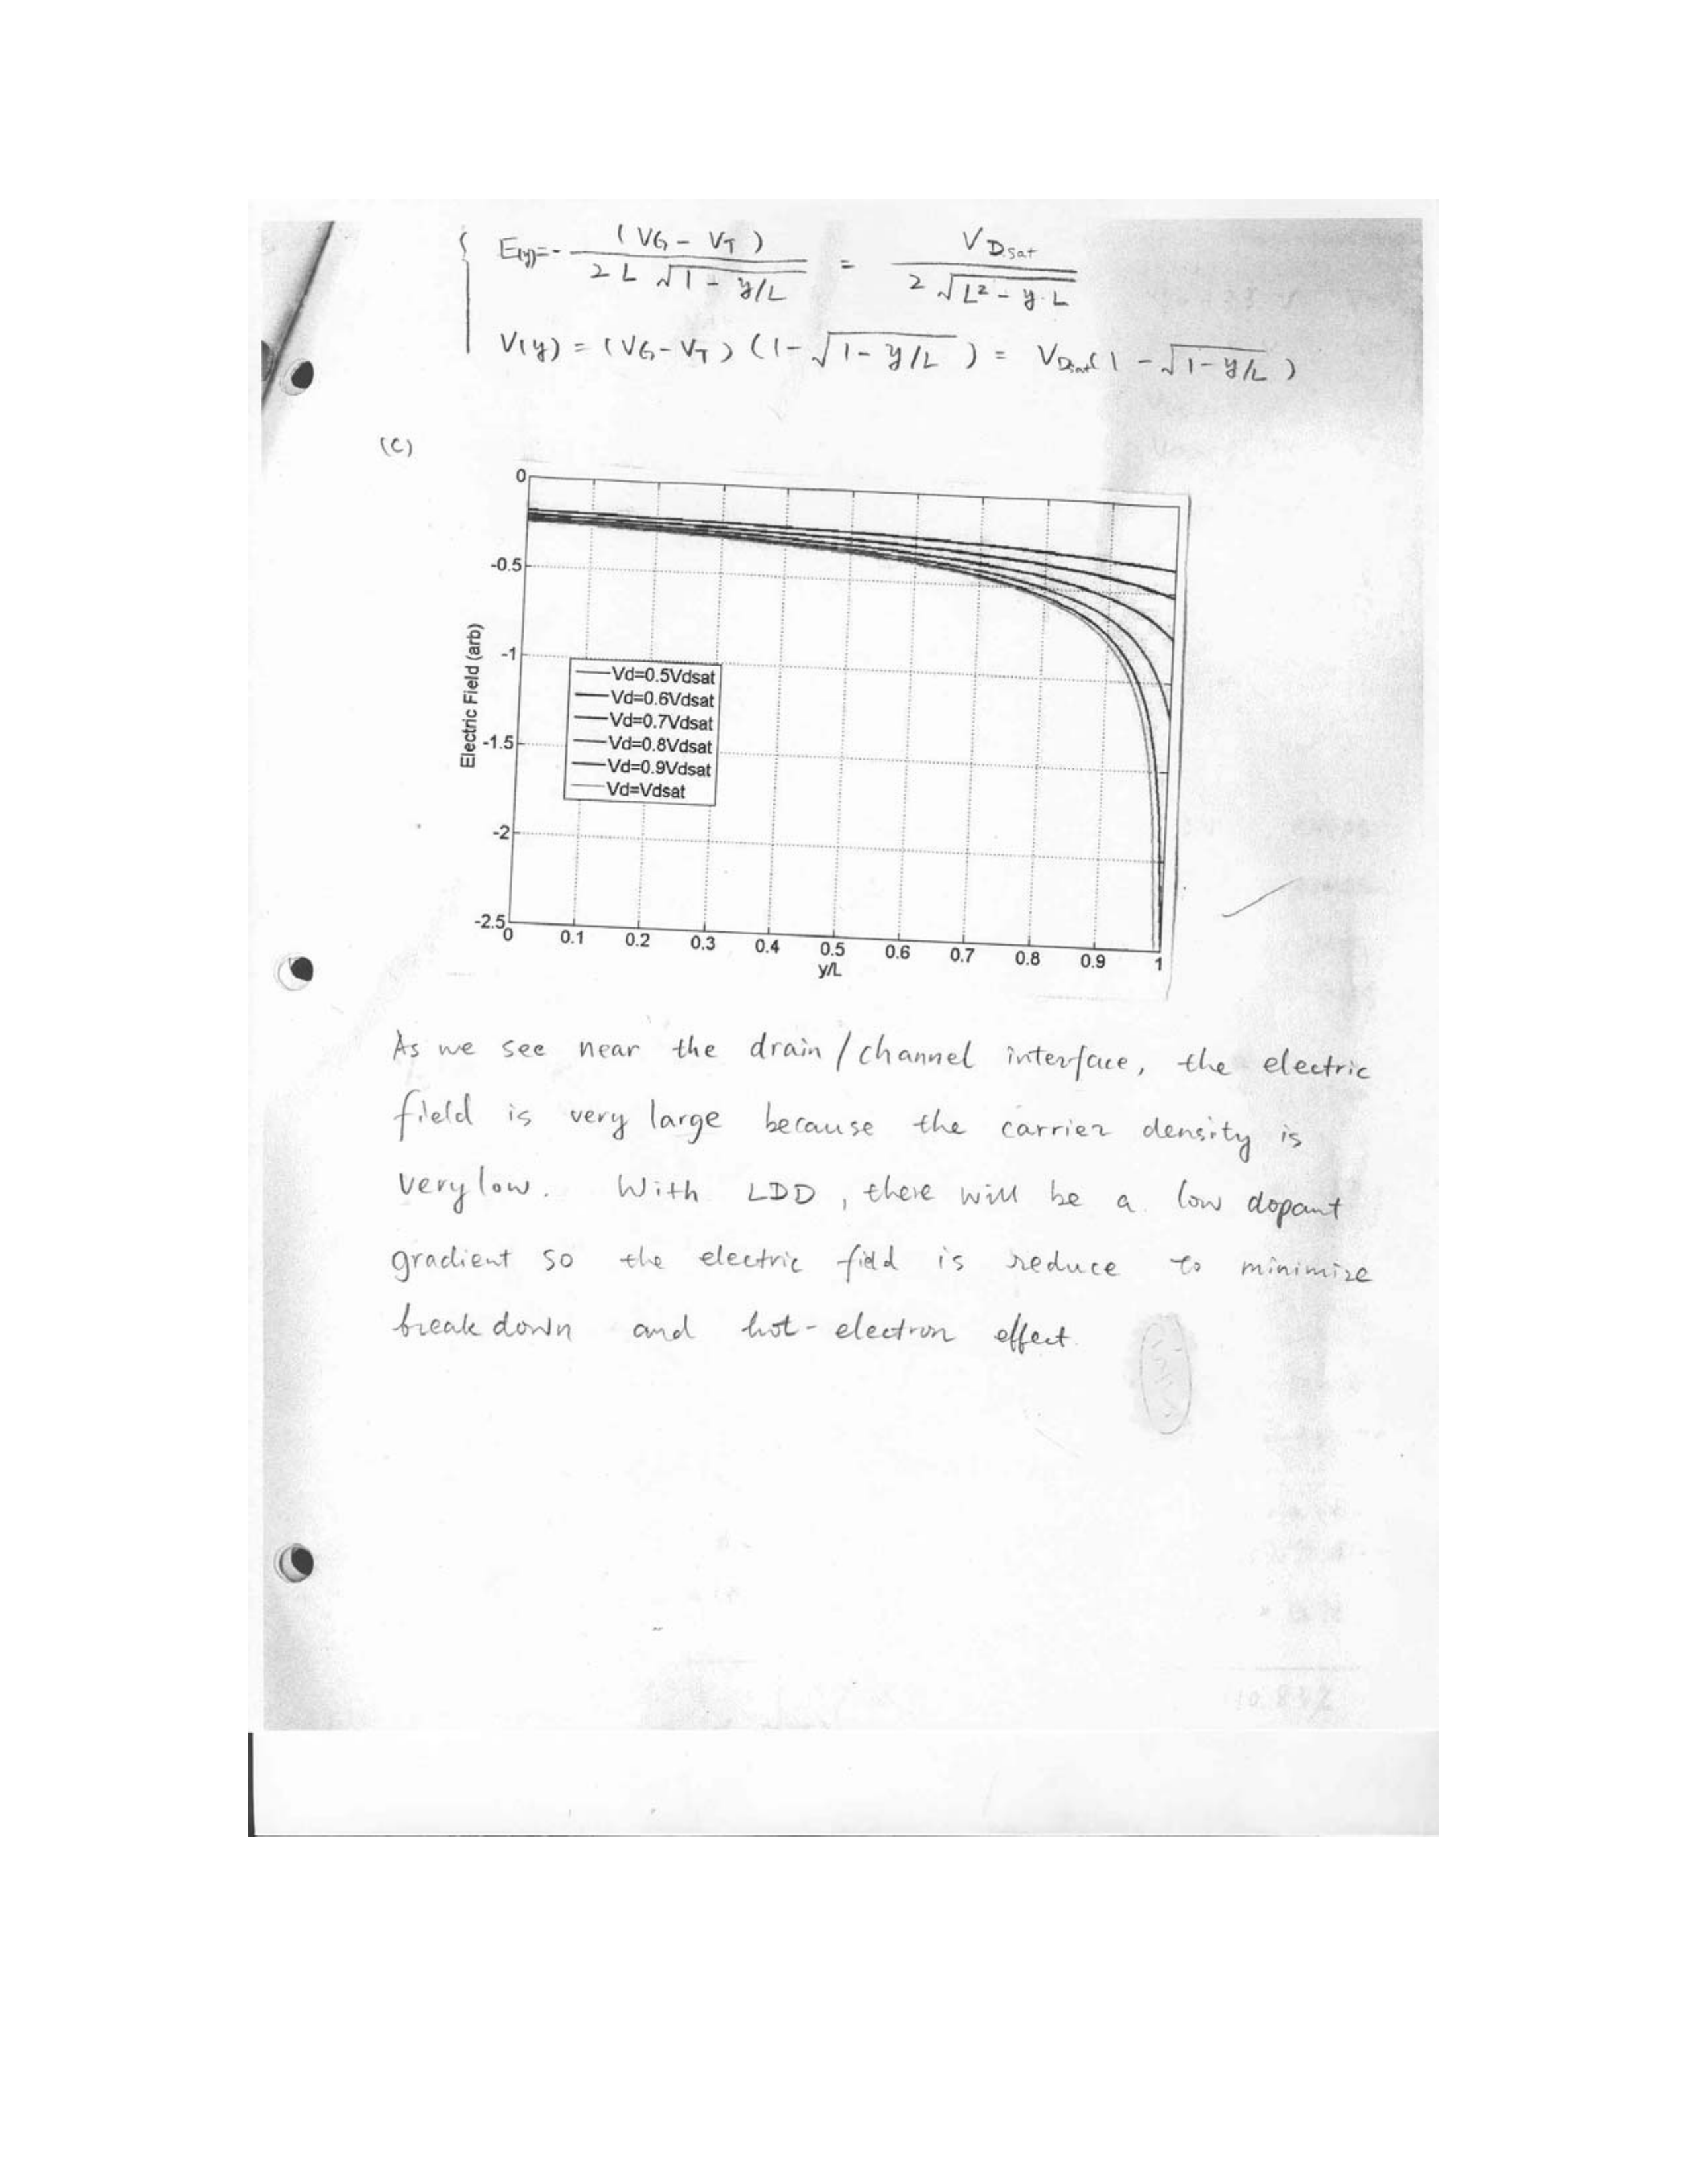 E(y)= - (VG - VT) / 2L √1 - y/L = VDsat / 2 √L² - y·L
V(y) = (VG - VT) (1 - √1 - y/L ) = VDsat(1 - √1 - y/L )
(C)
0
-0.5
-1
-1.5
-2
-2.5
Electric Field (arb)
Vd=0.5Vdsat
Vd=0.6Vdsat
Vd=0.7Vdsat
Vd=0.8Vdsat
Vd=0.9Vdsat
Vd=Vdsat
0 0.1 0.2 0.3 0.4 0.5 0.6 0.7 0.8 0.9 1
y/L
As we see near the drain / channel interface, the electric
field is very large because the carrier density is
very low. With LDD, there will be a low dopant
gradient so the electric field is reduce to minimize
break down and hot-electron effect.